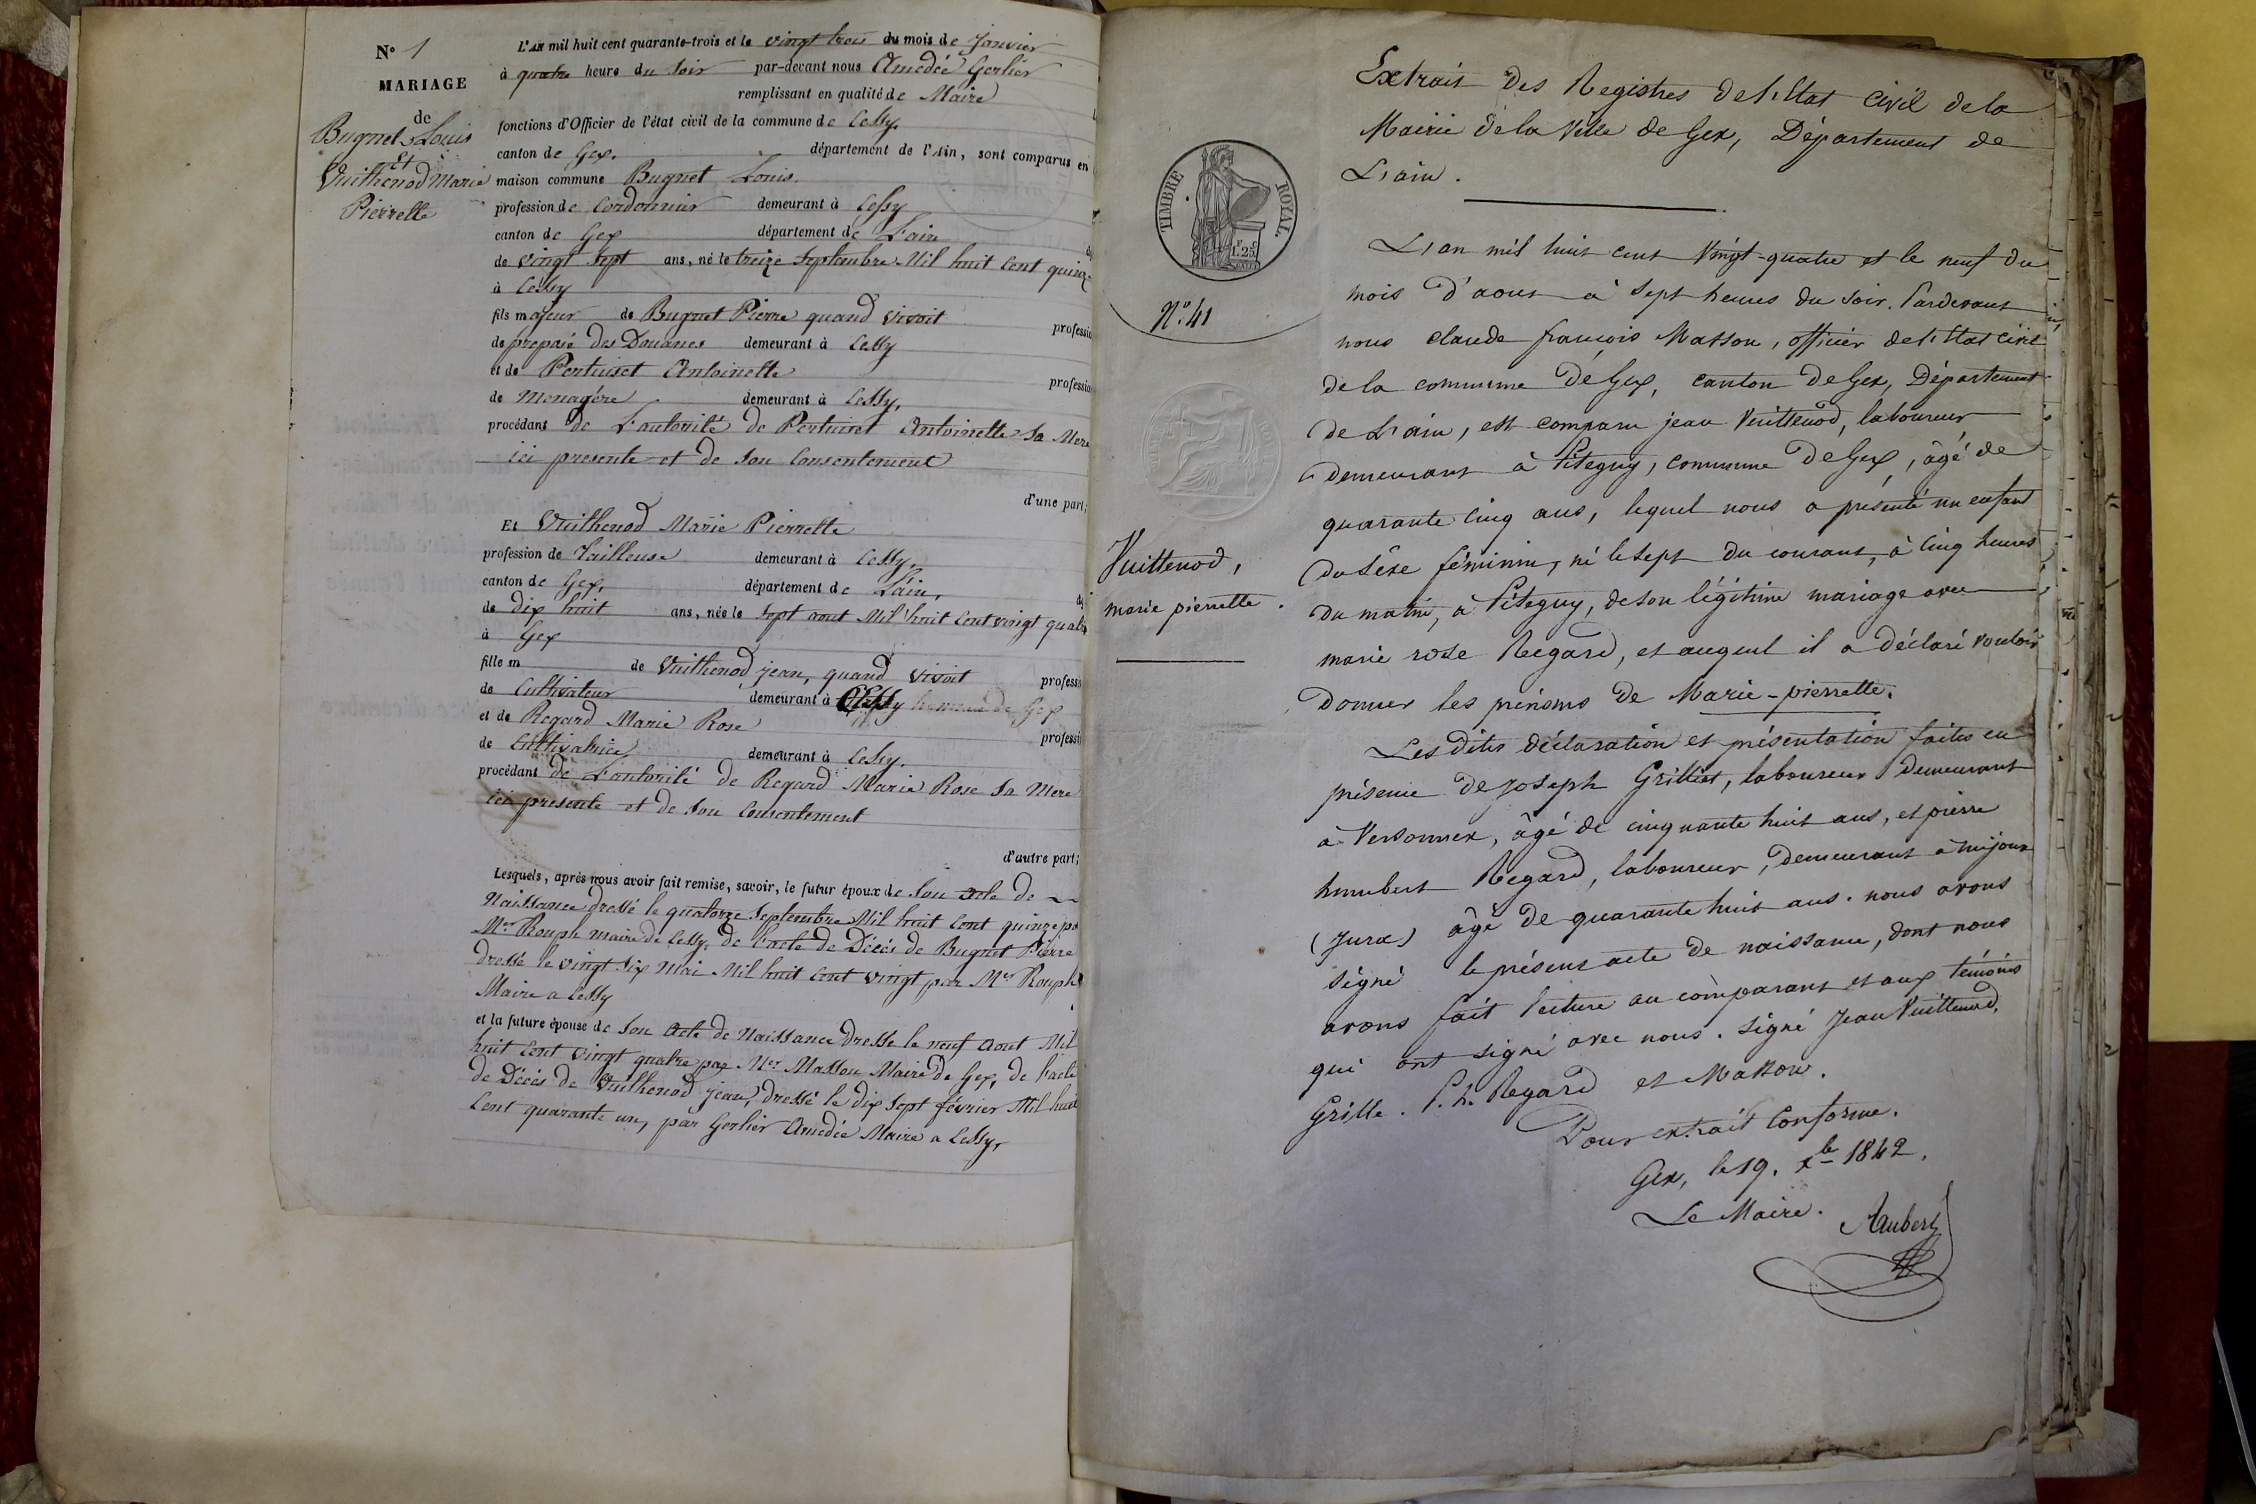 N° 1
MARIAGE
de
Bugnet Louis
Et
Vuithenod Marie
Pierrette
L'AN mil huit cent quarante-trois et le vingt trois du mois de Janvier
à quatre heure du Soir par-devant nous Amedée Gerlier
remplissant en qualité de Maire
fonctions d'Officier de l'état civil de la commune de Cessy.
canton de Gex. département de l'Ain, sont comparus en
maison commune Bugnet Louis.
profession de Cordonnier demeurant à Cessy
canton de Gex département de L'ain
de vingt sept ans, né le treize Septembre Mil huit Cent quinze
à Cessy
fils majeur de Bugnet Pierre quand vivoit
professio
de preposé des Douanes demeurant à Cessy
et de Pertuiset Antoinette
professio
de Menagére demeurant à Cessy,
procédant de L'autorité de Pertuiset Antoinette Sa Mere
ici presente et de Son Consentement
d'une part;
Et Vuithenod Marie Pierrette
profession de Tailleuse demeurant à Cessy,
canton de Gex, département de L'ain,
de dix huit ans, née le Sept aout Mil huit Cent vingt quatre
à Gex
fille m de Vuithenod jean, quand vivoit
professi
de Cultivateur demeurant à Cessy de Gex
et de Regard Marie Rose
professi
de Cultivatrice demeurant à Cessy.
procédant de L'autorité de Regard Marie Rose Sa Mere
ici presente et de Son Consentement
d'autre part;
Lesquels, après nous avoir fait remise, savoir, le futur époux de Son acte de
Naissance dressé le quatorze Septembre Mil huit Cent quinze pa
Mr Rouph maire de Cessy. de L'acte de Décés de Bugnet Pierre
dressé le vingt Six Mai Mil huit Cent vingt par Mr Rouph
Maire a Cessy
et la future épouse de Son Acte de Naissance dresse le neuf Aout Mil
huit Cent vingt quatre par Mr Masson Maire de Gex, de l'acte
de Décés de Vuithenod jean, dressé le dix Sept février Mil huit
Cent quarante un, par Gerlier Amedée Maire a Cessy,
TIMBRE ROYAL.
1.25
N° 41
Vuittenod,
marie pierrette.
Extrait des Registres de l'Etat Civil de la
Mairie de la Ville de Gex, Département de
L'ain.
L'an mil huit cent vingt-quatre et le neuf du
mois d'aout à Sept heures du Soir. Pardevant
nous claude françois Masson, officier de l'Etat civil
de la commune de Gex, canton de Gex, Département
de L'ain, est comparu jean Vuittenod, laboureur,
demeurant à Pitegny, commune de Gex, âgé de
quarante cinq ans, lequel nous a présenté un enfant
du Séxe féminin, né le Sept du courant, à Cinq heures
du matin, à Pitegny, de son légitime mariage avec
marie rose Regard, et auquel il a déclaré vouloir
donner les prénoms de Marie-pierrette.
Les dites déclaration et présentation faites en
présence de joseph Grillet, laboureur demeurant
à Versonnex, âgé de cinquante huit ans, et pierre
humbert Regard, laboureur, demeurant à mijoux
(Jura) âgé de quarante huit ans. nous avons
Signé le présent acte de naissance, dont nous
avons fait lecture au comparant et aux témoins
qui ont signé avec nous. Signé Jean Vuittenod,
Grille. P. h. Regard et Masson.
Pour extrait Conforme.
Gex, le 19. xbre 1842.
Le Maire.
Aubert